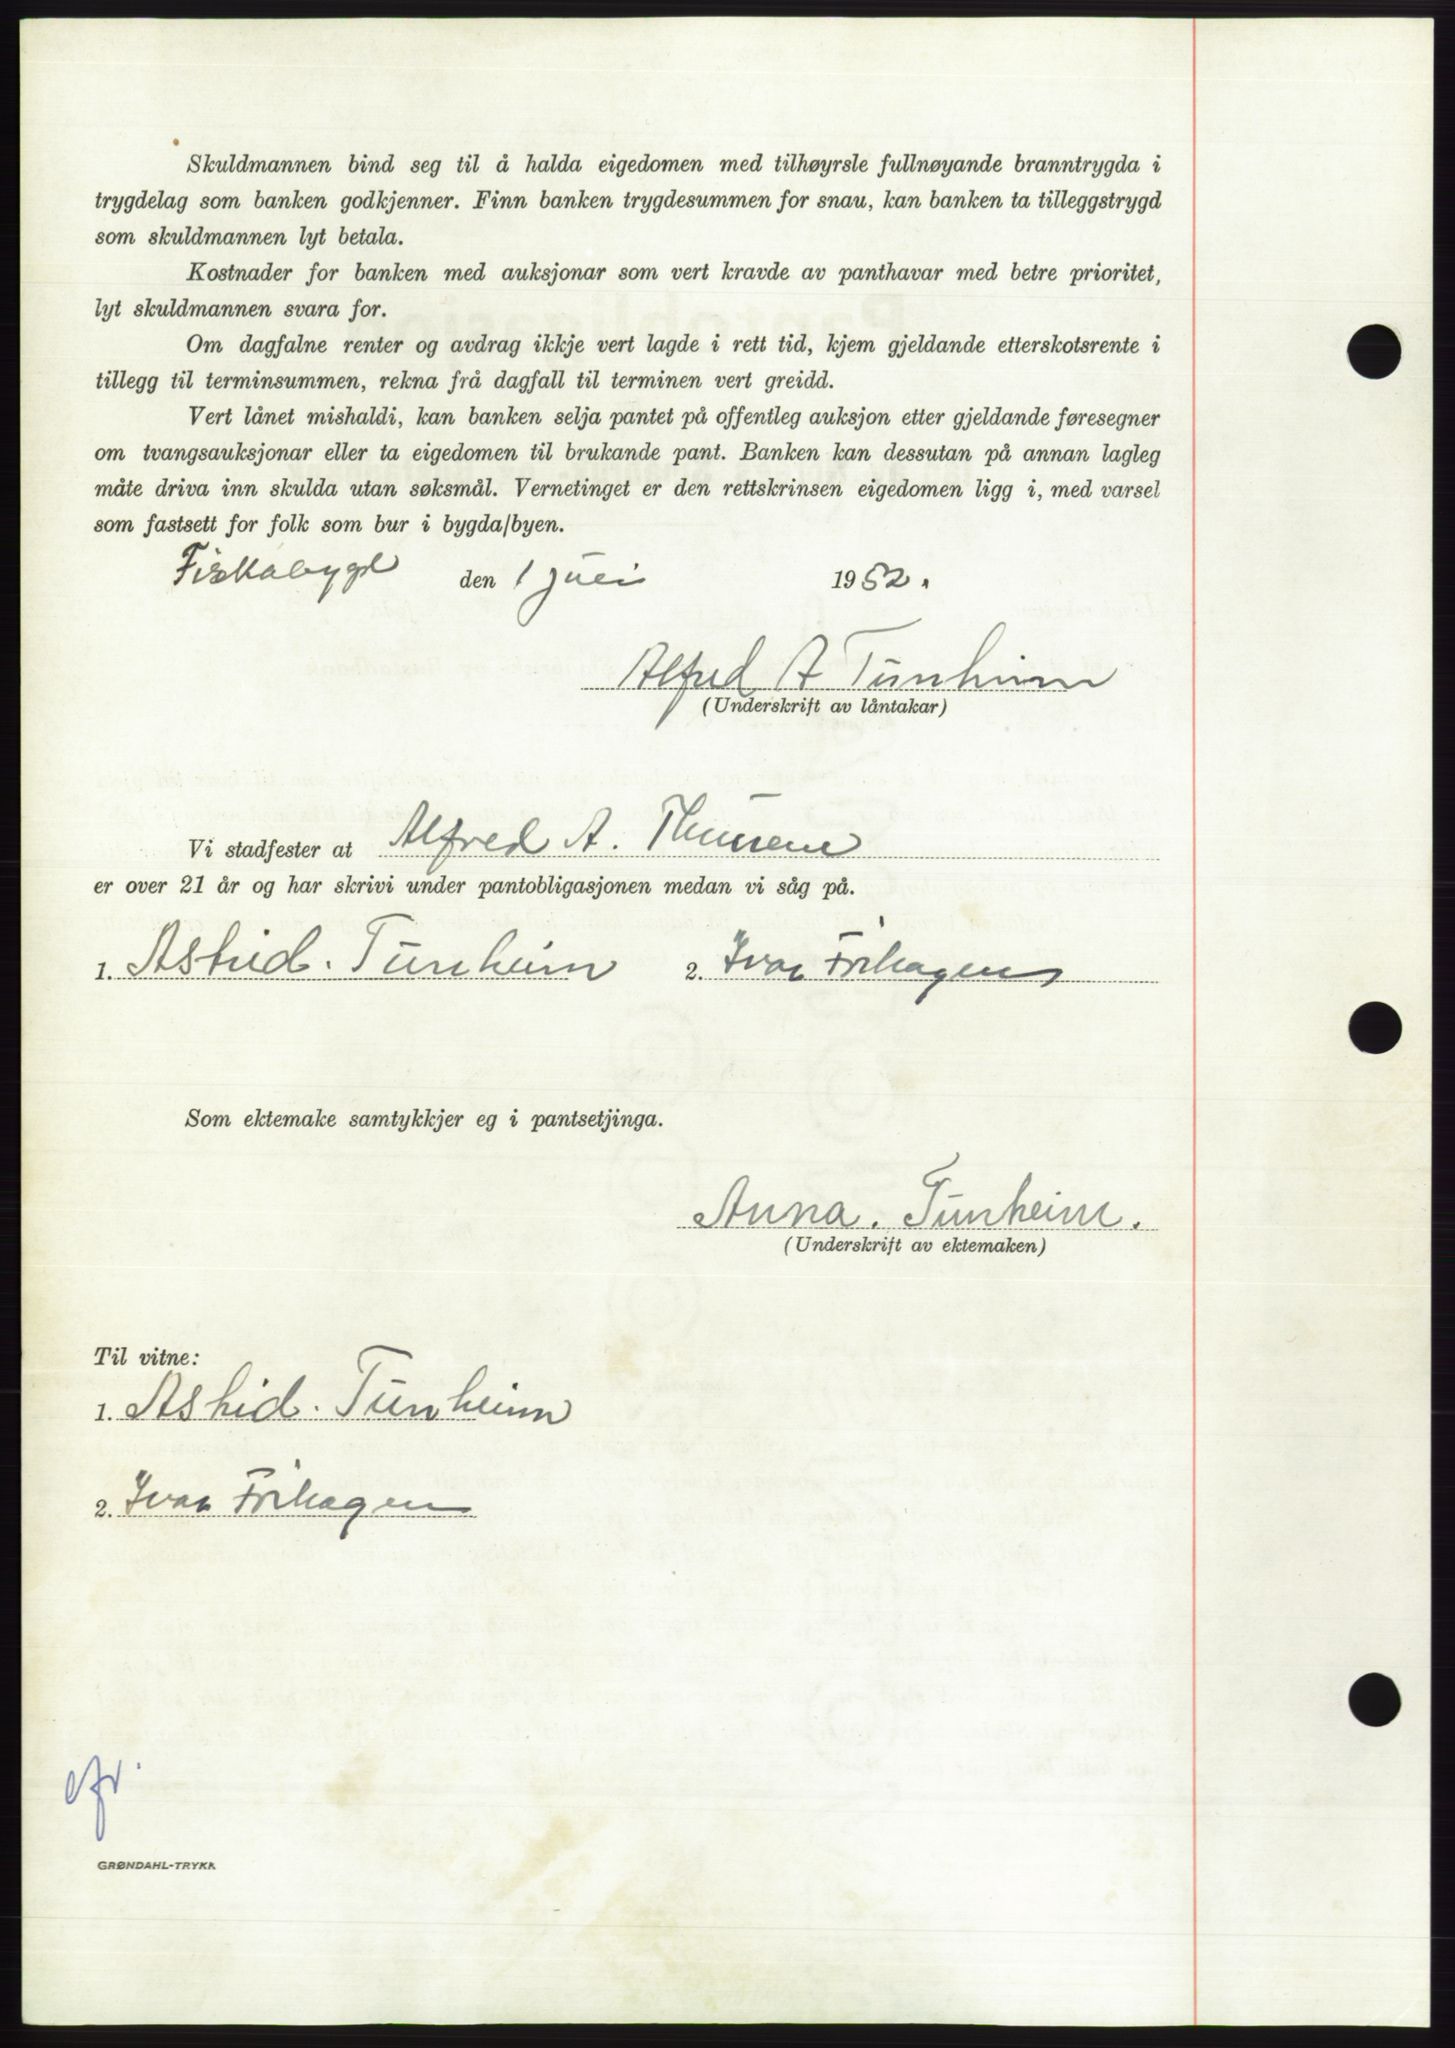 Skuldmannen bind seg til å halda eigedomen med tilhøyrsle fullnøyande branntrygda i
trygdelag som banken godkjenner. Finn banken trygdesummen for snau, kan banken ta tilleggstrygd
som skuldmannen lyt betala.
Kostnader for banken med auksjonar som vert kravde av panthavar med betre prioritet,
lyt skuldmannen svara for.
Om dagfalne renter og avdrag ikkje vert lagde i rett tid, kjem gjeldande etterskotsrente i
tillegg til terminsummen, rekna frå dagfall til terminen vert greidd.
Vert lånet mishaldi, kan banken selja pantet på offentleg auksjon etter gjeldande føresegner
om tvangsauksjonar eller ta eigedomen til brukande pant. Banken kan dessutan på annan lagleg
måte driva inn skulda utan søksmål. Vernetinget er den rettskrinsen eigedomen ligg i, med varsel
som fastsett for folk som bur i bygda/byen.
Fiskabygd den 1 juli 1952.
Alfred A Tunheim
(Underskrift av låntakar)
Vi stadfester at Alfred A.
er over 21 år og har skrivi under pantobligasjonen medan vi såg på.
1. Astrid. Tunheim 2. Ivar Frihagen
Som ektemake samtykkjer eg i pantsetjinga.
Anna. Tunheim.
(Underskrift av ektemaken)
Til vitne:
1. Astrid. Tunheim
2. Ivar Frihagen
GRØNDAHL-TRYKK